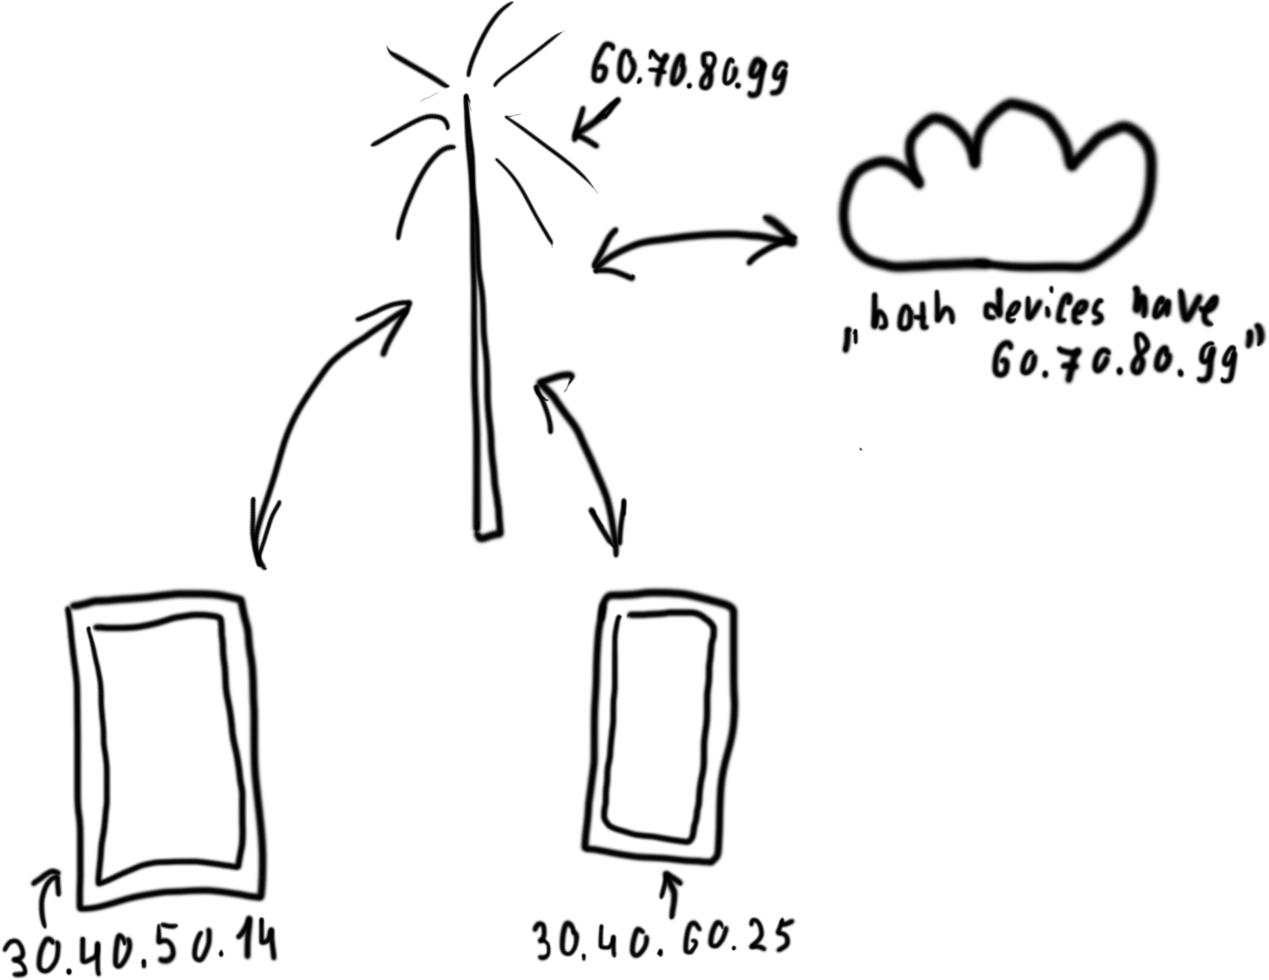 60.70.80.99
„both devices have
60.70.80.99”
30.40.50.14
30.40.60.25